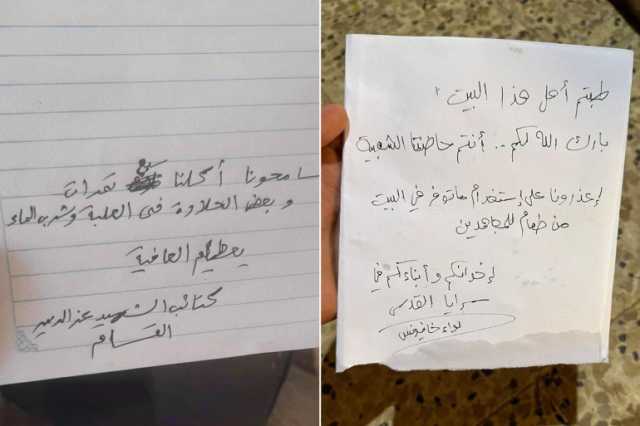 سامحونا أكلنا كم تمرات
وبعض الحلاوة في العلبة وشرب الماء
يعطيكم العافية
كتائب الشهيد عز الدين
القسام
طبتم أهل هذا البيت،
بارك الله لكم.. أنتم حاضنتنا الشعبية
إعذرونا على إستخدام ما توفر في البيت
من طعام للمجاهدين
إخوانكم وأبناءكم في
سرايا القدس
لواء خانيونس